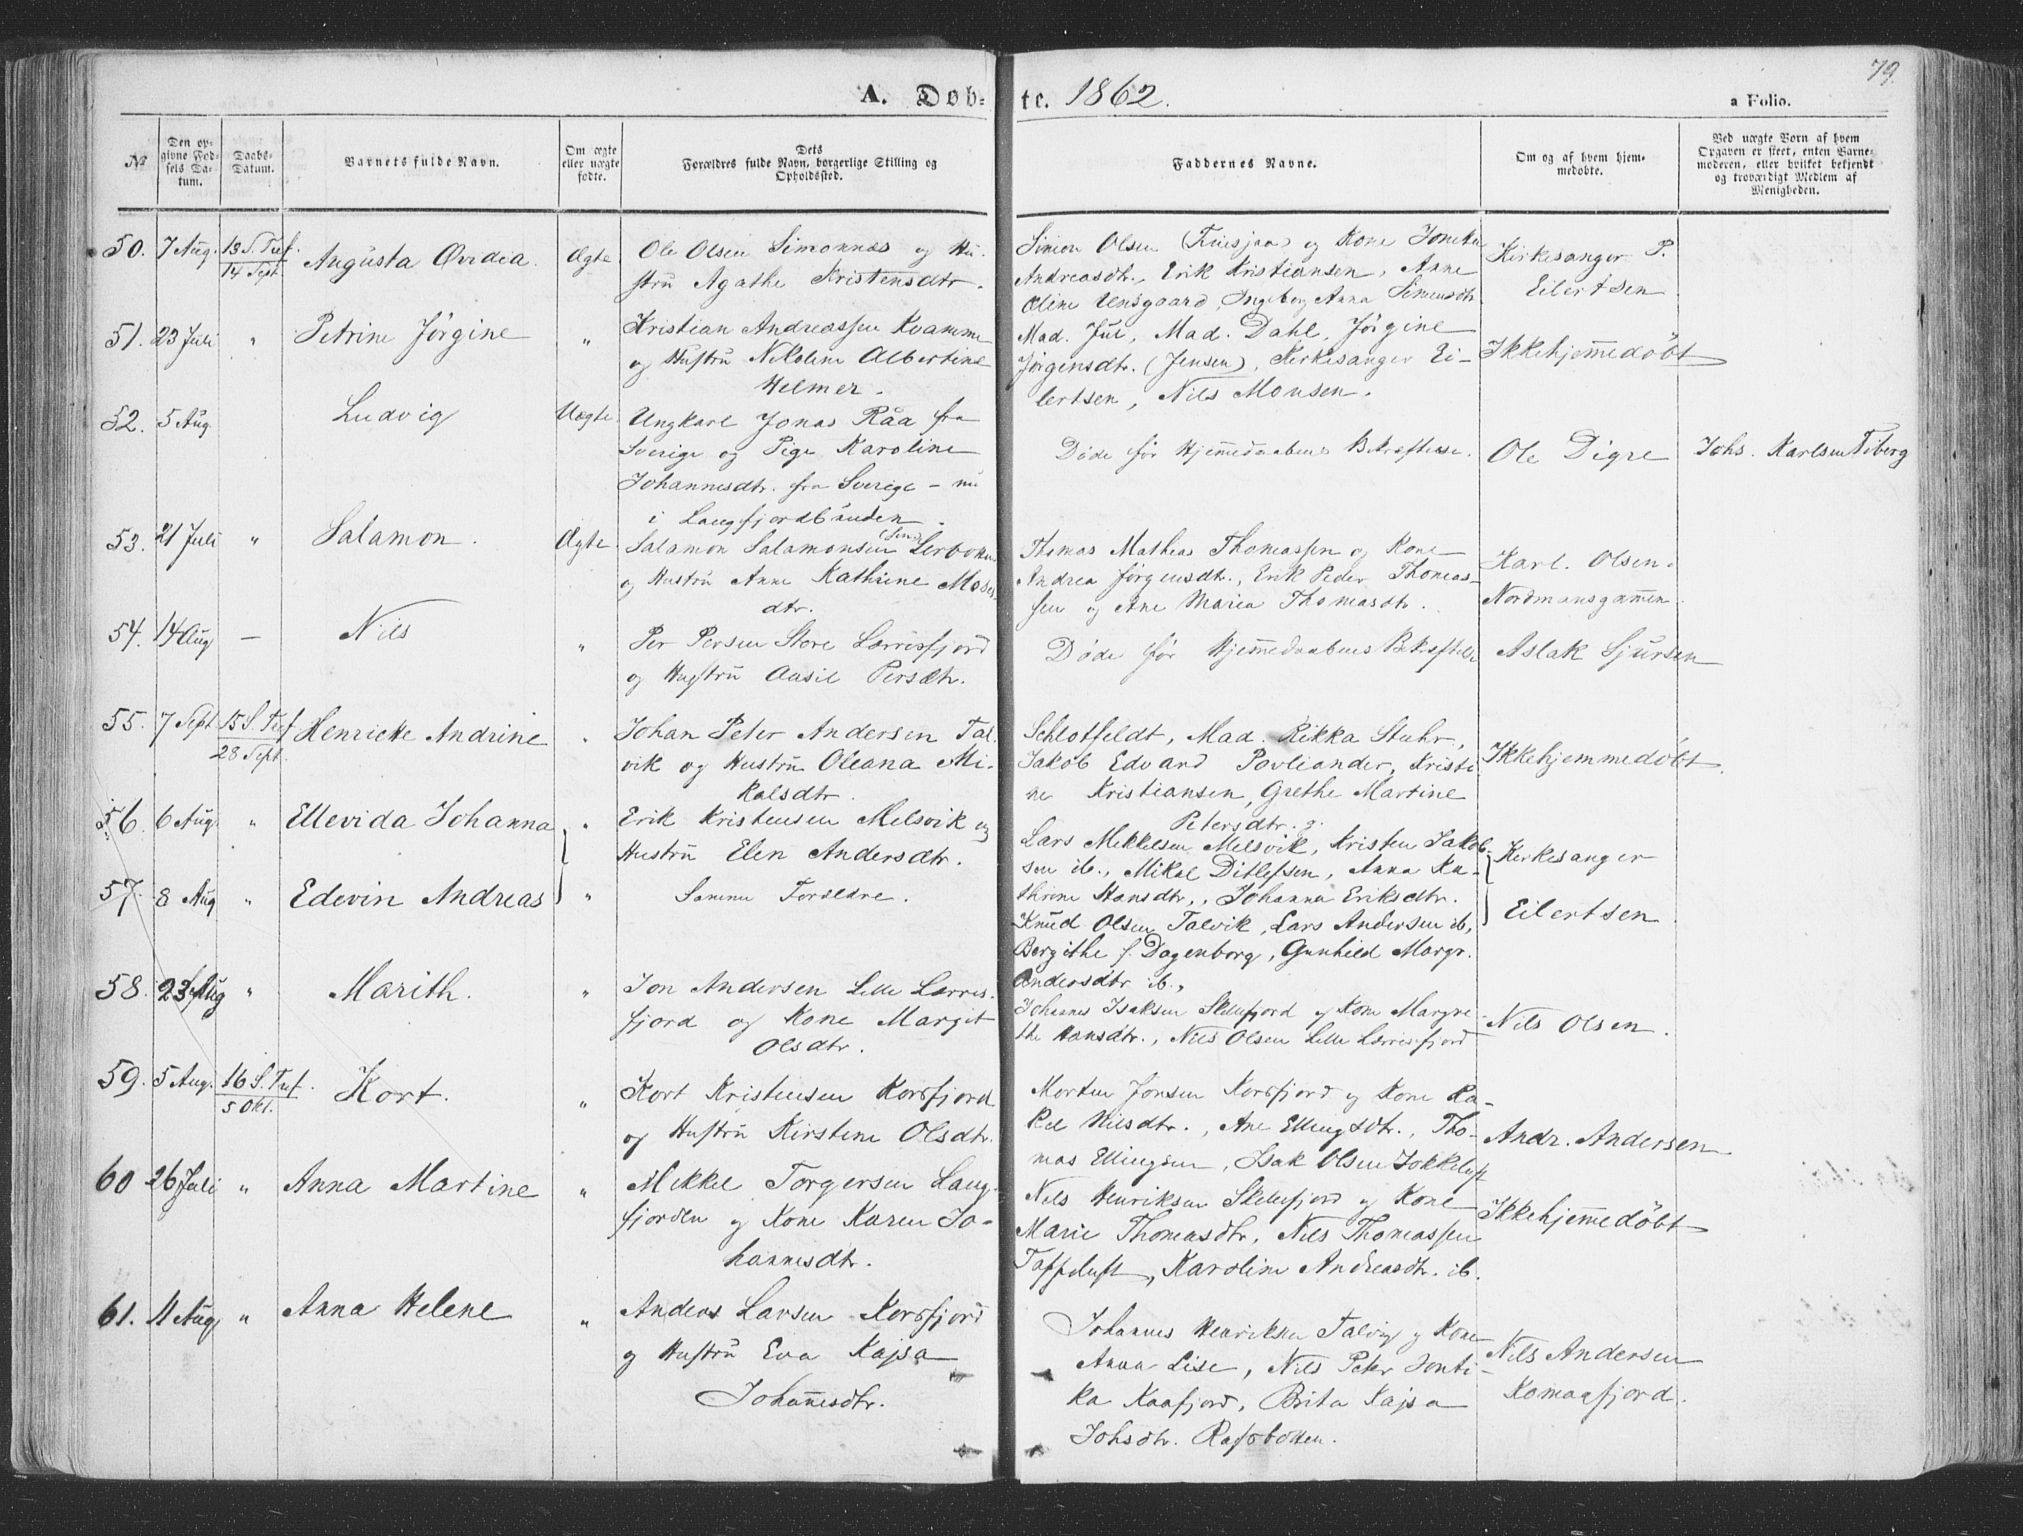 A. Døb-
te. 1862.
79.
a Folio.
No
Den opgivne Fødsels Datum.
Daabs-Datum.
Barnets fulde Navn.
Om ægte eller uægte fødte.
Dets Forældres fulde Navn, borgerlige Stilling og Opholdssted.
Faddernes Navne.
Om og af hvem hjemmedøbte.
Ved uægte Børn af hvem Opgaven er skeet, enten Barnemoderen, eller hvilket bekjendt og troværdigt Medlem af Menigheden.
50. 7 Aug. 13 S. Tref. 14 Sept. Augusta Ovidea. Ægte
Ole Olsen Simonnæs og Hu-
stru Agathe Kristensdtr.
Simon Olsen og Kone
Andreasdtr., Erik Kristiansen, Anne
Oline Unsgaard, Ingeborg Anna Simonsdtr
Kirkesanger P.
Eilertsen
51. 23 Juli " Petrine Jörgine "
Kristian Andreassen Kvamme
og Hustru Nikoline Albertine
Helmer.
Mad. Jul, Mad. Dahl, Jörgine
Jörgensdtr. (Jensen), Kirkesanger Ei-
lertsen, Nils Monsen.
Ikkehjemmedøbt
52. 5 Aug Ludvig Uægte
Ungkarl Jonas Råa fra
Sverige og Pige Karoline
Johannesdtr. fra Sverige – nu
i Langfjordbunden.
Døde før Hjemmedaabens Bekræftelse.
Ole Digre
Johs. Karlsen Tiberg
53. 21 Juli " Salamon. Ægte
Salamon Salamonsen
og Hustru Anne Kathrine Moses-
dtr.
Thomas Mathias Thomassen og Kone
Andrea Jørgensdtr., Erik Peder Thomas-
sen og Ane Maria Thomasdtr.
Karl. Olsen.
Nordmansgammen
54. 14 Aug – Nils "
Per Persen Store Lerrisfjord
og Hustru Ausil Persdtr.
Døde før Hjemmedaabens Bekræftelse
Aslak Sjursen
55. 7 Sept 15 S. Tref 28 Sept. Henricke Andrine "
Johan Peter Andersen Tal-
vik og Hustru Oleana Mi-
kalsdtr.
Schlotfeldt, Mad. Rikka Stuhr,
Jakob Edvard Povliander, Kristi-
ne Kristiansen, Grethe Martine
Petersdtr.
Ikkehjemmedøbt
56. 6 Aug. " Ellevida Johanna "
Erik Kristensen Melsvik og
Hustru Elen Andersdtr.
Lars Mekkelsen Melsvik, Kristen Jakob-
sen ib., Mikal Ditlefsen, Anna Ka-
thrine Hansdtr., Johanna Eriksdtr.
Kirkesanger
57. 8 Aug " Edevin Andreas "
Samme Forældre.
Knud Olsen Talvik, Lars Andersen ib,
Bergithe f. Dagenborg, Gunhild Margr.
Andersdtr ib.,
Eilertsen
58. 23 Aug " Marith. "
Jon Andersen Lille Lerris-
fjord og Kone Margit
Olsdtr.
Johannes Isaksen Skillefjord og Kone Margre-
the Hansdtr., Nils Olsen Lille Lerrisfjord
Nils Olsen.
59. 5 Aug. 16 S. Tref. 5 Okt. Kort. "
Kort Kristensen Korsfjord
og Hustru Kirstine Olsdtr.
Morten Jonsen Korsfjord og Kone Ra-
kel Nilsdtr., Ane Ellingsdtr., Tho-
mas Ellingsen, Isak Olsen
Andr. Andersen
60 26 Juli " Anna Martine "
Mikkel Torgersen Lang-
fjorden og Kone Karen Jo-
hannesdtr.
Nils Henriksen Skillefjord og Kone
Marie Thomasdtr, Nils Thomassen
Tappeluft, Karoline Andreasdtr. ib.
Ikkehjemmedøbt
61. 11 Aug " Anna Helene "
Anders Larsen Korsfjord
og Hustru Eva Kajsa
Johannesdtr.
Johannes Henriksen Talvig og Kone
Anna Lise, Nils Peter
Kaafjord, Brita Kajsa
Johsdtr. Rafsbotten.
Nils Andersen
Komagfjord.